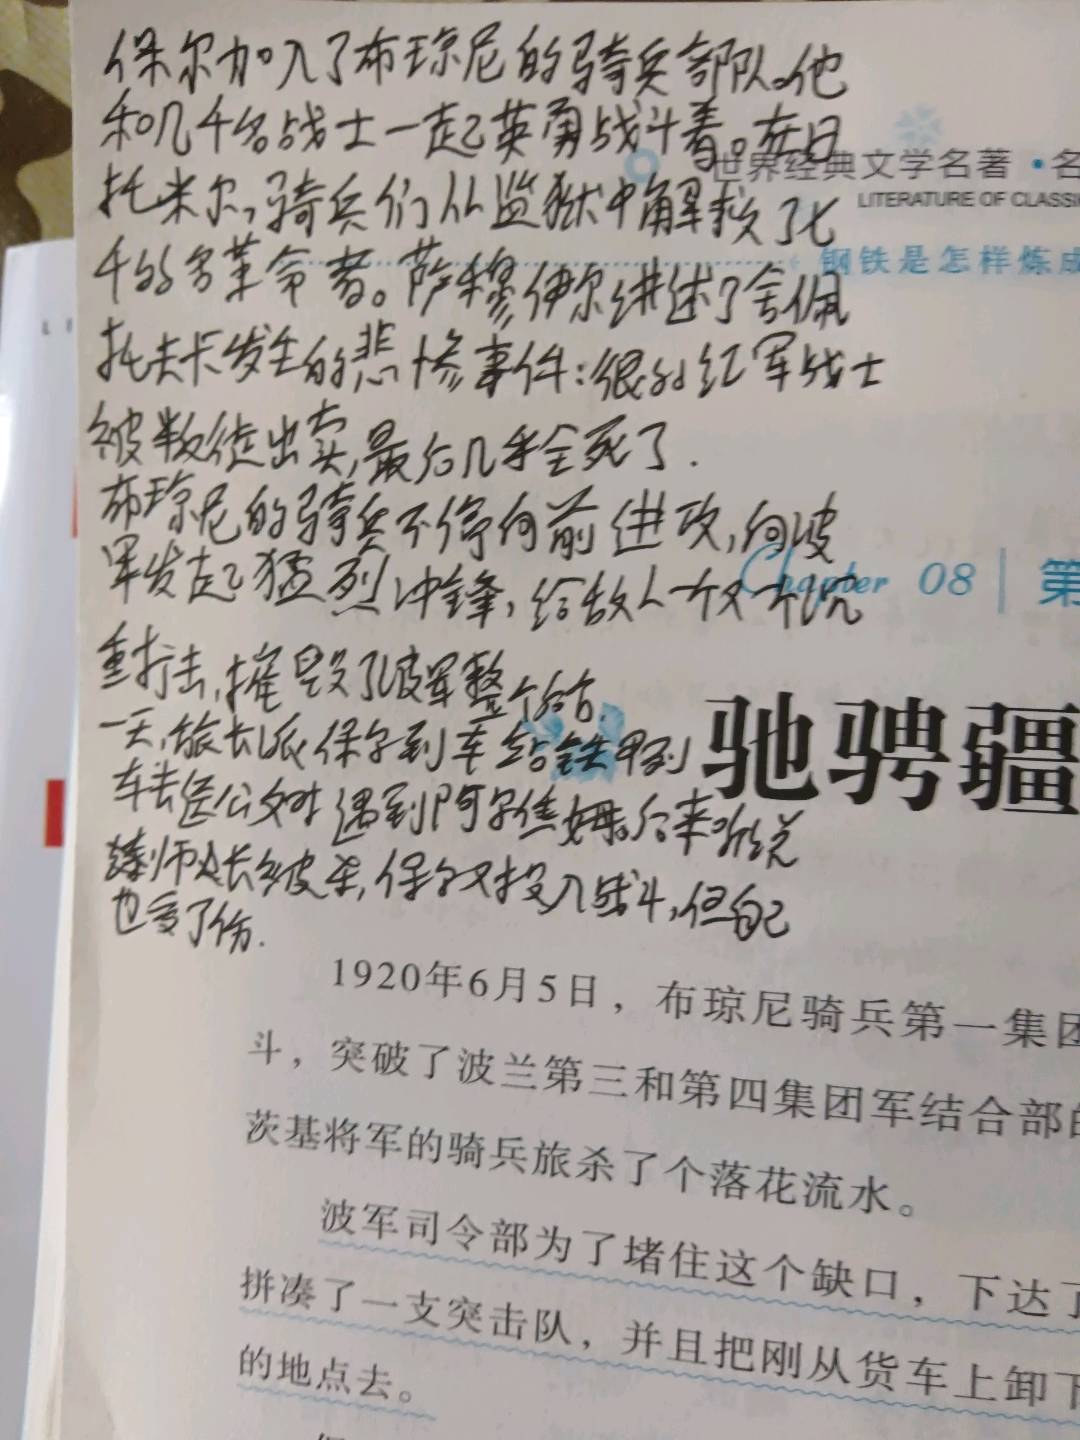 保尔加入了布琼尼的骑兵部队。他
和几千名战士一起英勇战斗着。在日
托米尔,骑兵们从监狱中解救了七
千的名革命者。萨穆伊尔讲述了舍佩
托夫卡发生的悲惨事件:很多红军战士
被叛徒出卖,最后几乎全死了.
布琼尼的骑兵不停向前进攻,向波
军发起猛烈冲锋,给敌人一次又一次沉
重打击,摧毁了波军整个后方.
一天,旅长派保尔到车站给铁甲列
车去送公文时遇到阿尔焦姆。后来听说
师长被杀,保尔又投入战斗,但自己
也受了伤.
世界经典文学名著·名
LITERATURE OF CLASSI
钢铁是怎样炼成
Chapter 08 第
驰骋疆
1920年6月5日,布琼尼骑兵第一集团
斗,突破了波兰第三和第四集团军结合部的
茨基将军的骑兵旅杀了个落花流水。
波军司令部为了堵住这个缺口,下达了
拼凑了一支突击队,并且把刚从货车上卸下
的地点去。